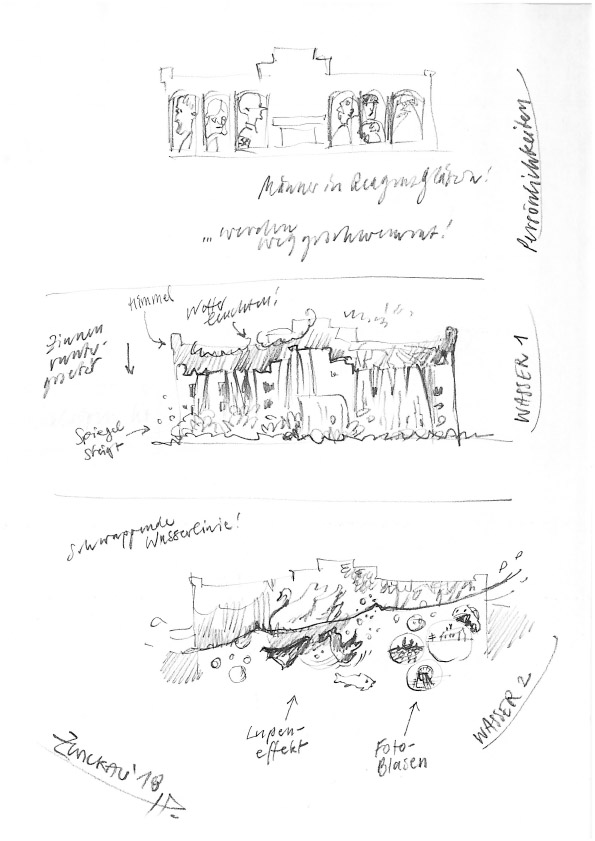 Persönlichkeiten
Männer in Reagenzgläsern!
... werden
weggeschwemmt!
Himmel
Wetter
leuchten!
Zinnen
runter-
gesetzt
WASSER 1
Spiegel
steigt
schwappende
Wasserlinie!
WASSER 2
Lupen-
effekt
Foto-
Blasen
ZWICKAU '18